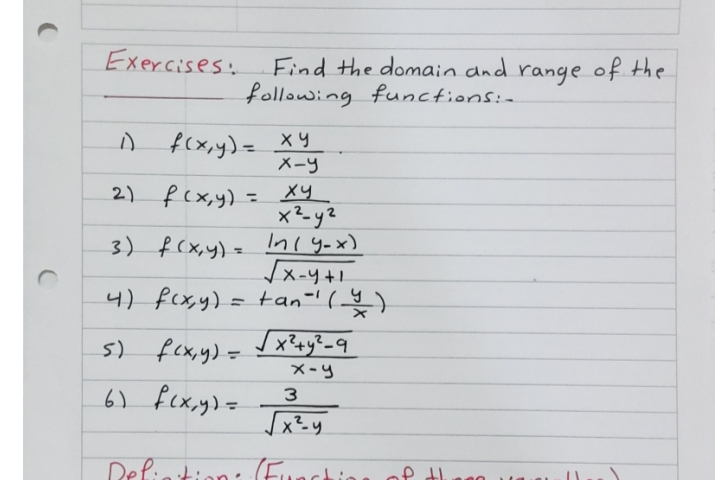 Exercises: Find the domain and range of the
following functions:-
1) f(x,y) = xy / x-y
2) f(x,y) = xy / x²-y²
3) f(x,y) = ln(y-x) / √x-y+1
4) f(x,y) = tan⁻¹(y/x)
5) f(x,y) = √x²+y²-9 / x-y
6) f(x,y) = 3 / √x²-y
Definition: (Function of three variables)